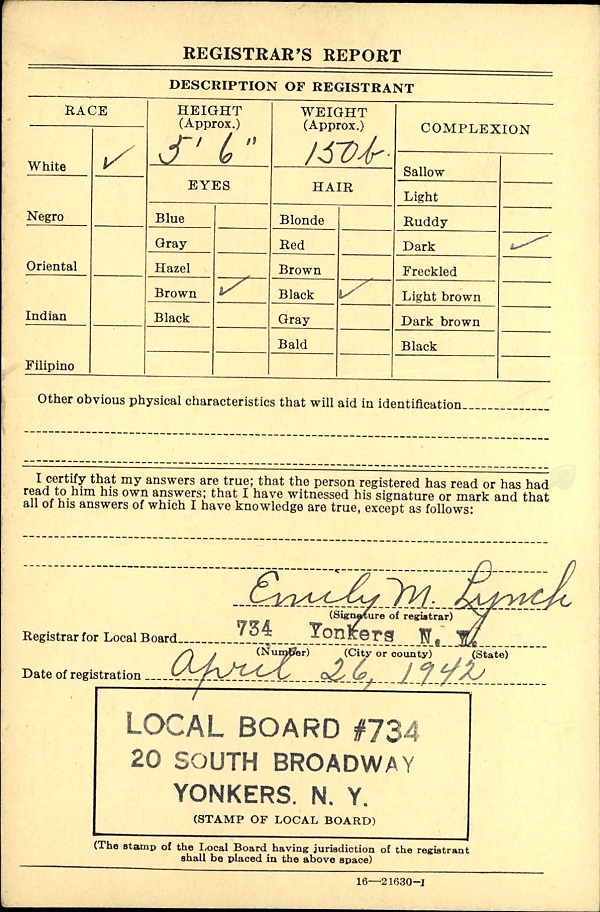 REGISTRAR'S REPORT
DESCRIPTION OF REGISTRANT
RACE
HEIGHT
(Approx.)
WEIGHT
(Approx.)
COMPLEXION
5' 6"
150
White ✓
Negro
Oriental
Indian
Filipino
EYES
Blue
Gray
Hazel
Brown ✓
Black
HAIR
Blonde
Red
Brown
Black ✓
Gray
Bald
Sallow
Light
Ruddy
Dark ✓
Freckled
Light brown
Dark brown
Black
Other obvious physical characteristics that will aid in identification
I certify that my answers are true; that the person registered has read or has had
read to him his own answers; that I have witnessed his signature or mark and that
all of his answers of which I have knowledge are true, except as follows:
Emily M. Lynch
(Signature of registrar)
Registrar for Local Board 734 Yonkers N. Y.
(Number) (City or county) (State)
Date of registration April 26, 1942
LOCAL BOARD #734
20 SOUTH BROADWAY
YONKERS. N. Y.
(STAMP OF LOCAL BOARD)
(The stamp of the Local Board having jurisdiction of the registrant
shall be placed in the above space)
16—21630-1